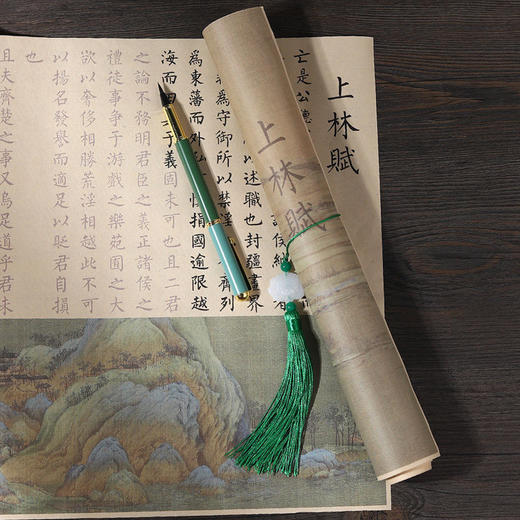 上林賦
亡是公
侯納
述職也封疆畫界
為守御所以禁淫 齊列
為東藩而外私 慎捐國逾限越
海而 于義固未可也且二君
之論不務明君臣之義正諸侯之
禮徒事爭于游戲之樂苑囿之大
欲以奢侈相勝荒淫相越此不可
以揚名發譽而適足以貶君自損
也
且夫齊楚之事又烏足道乎君未
上林賦